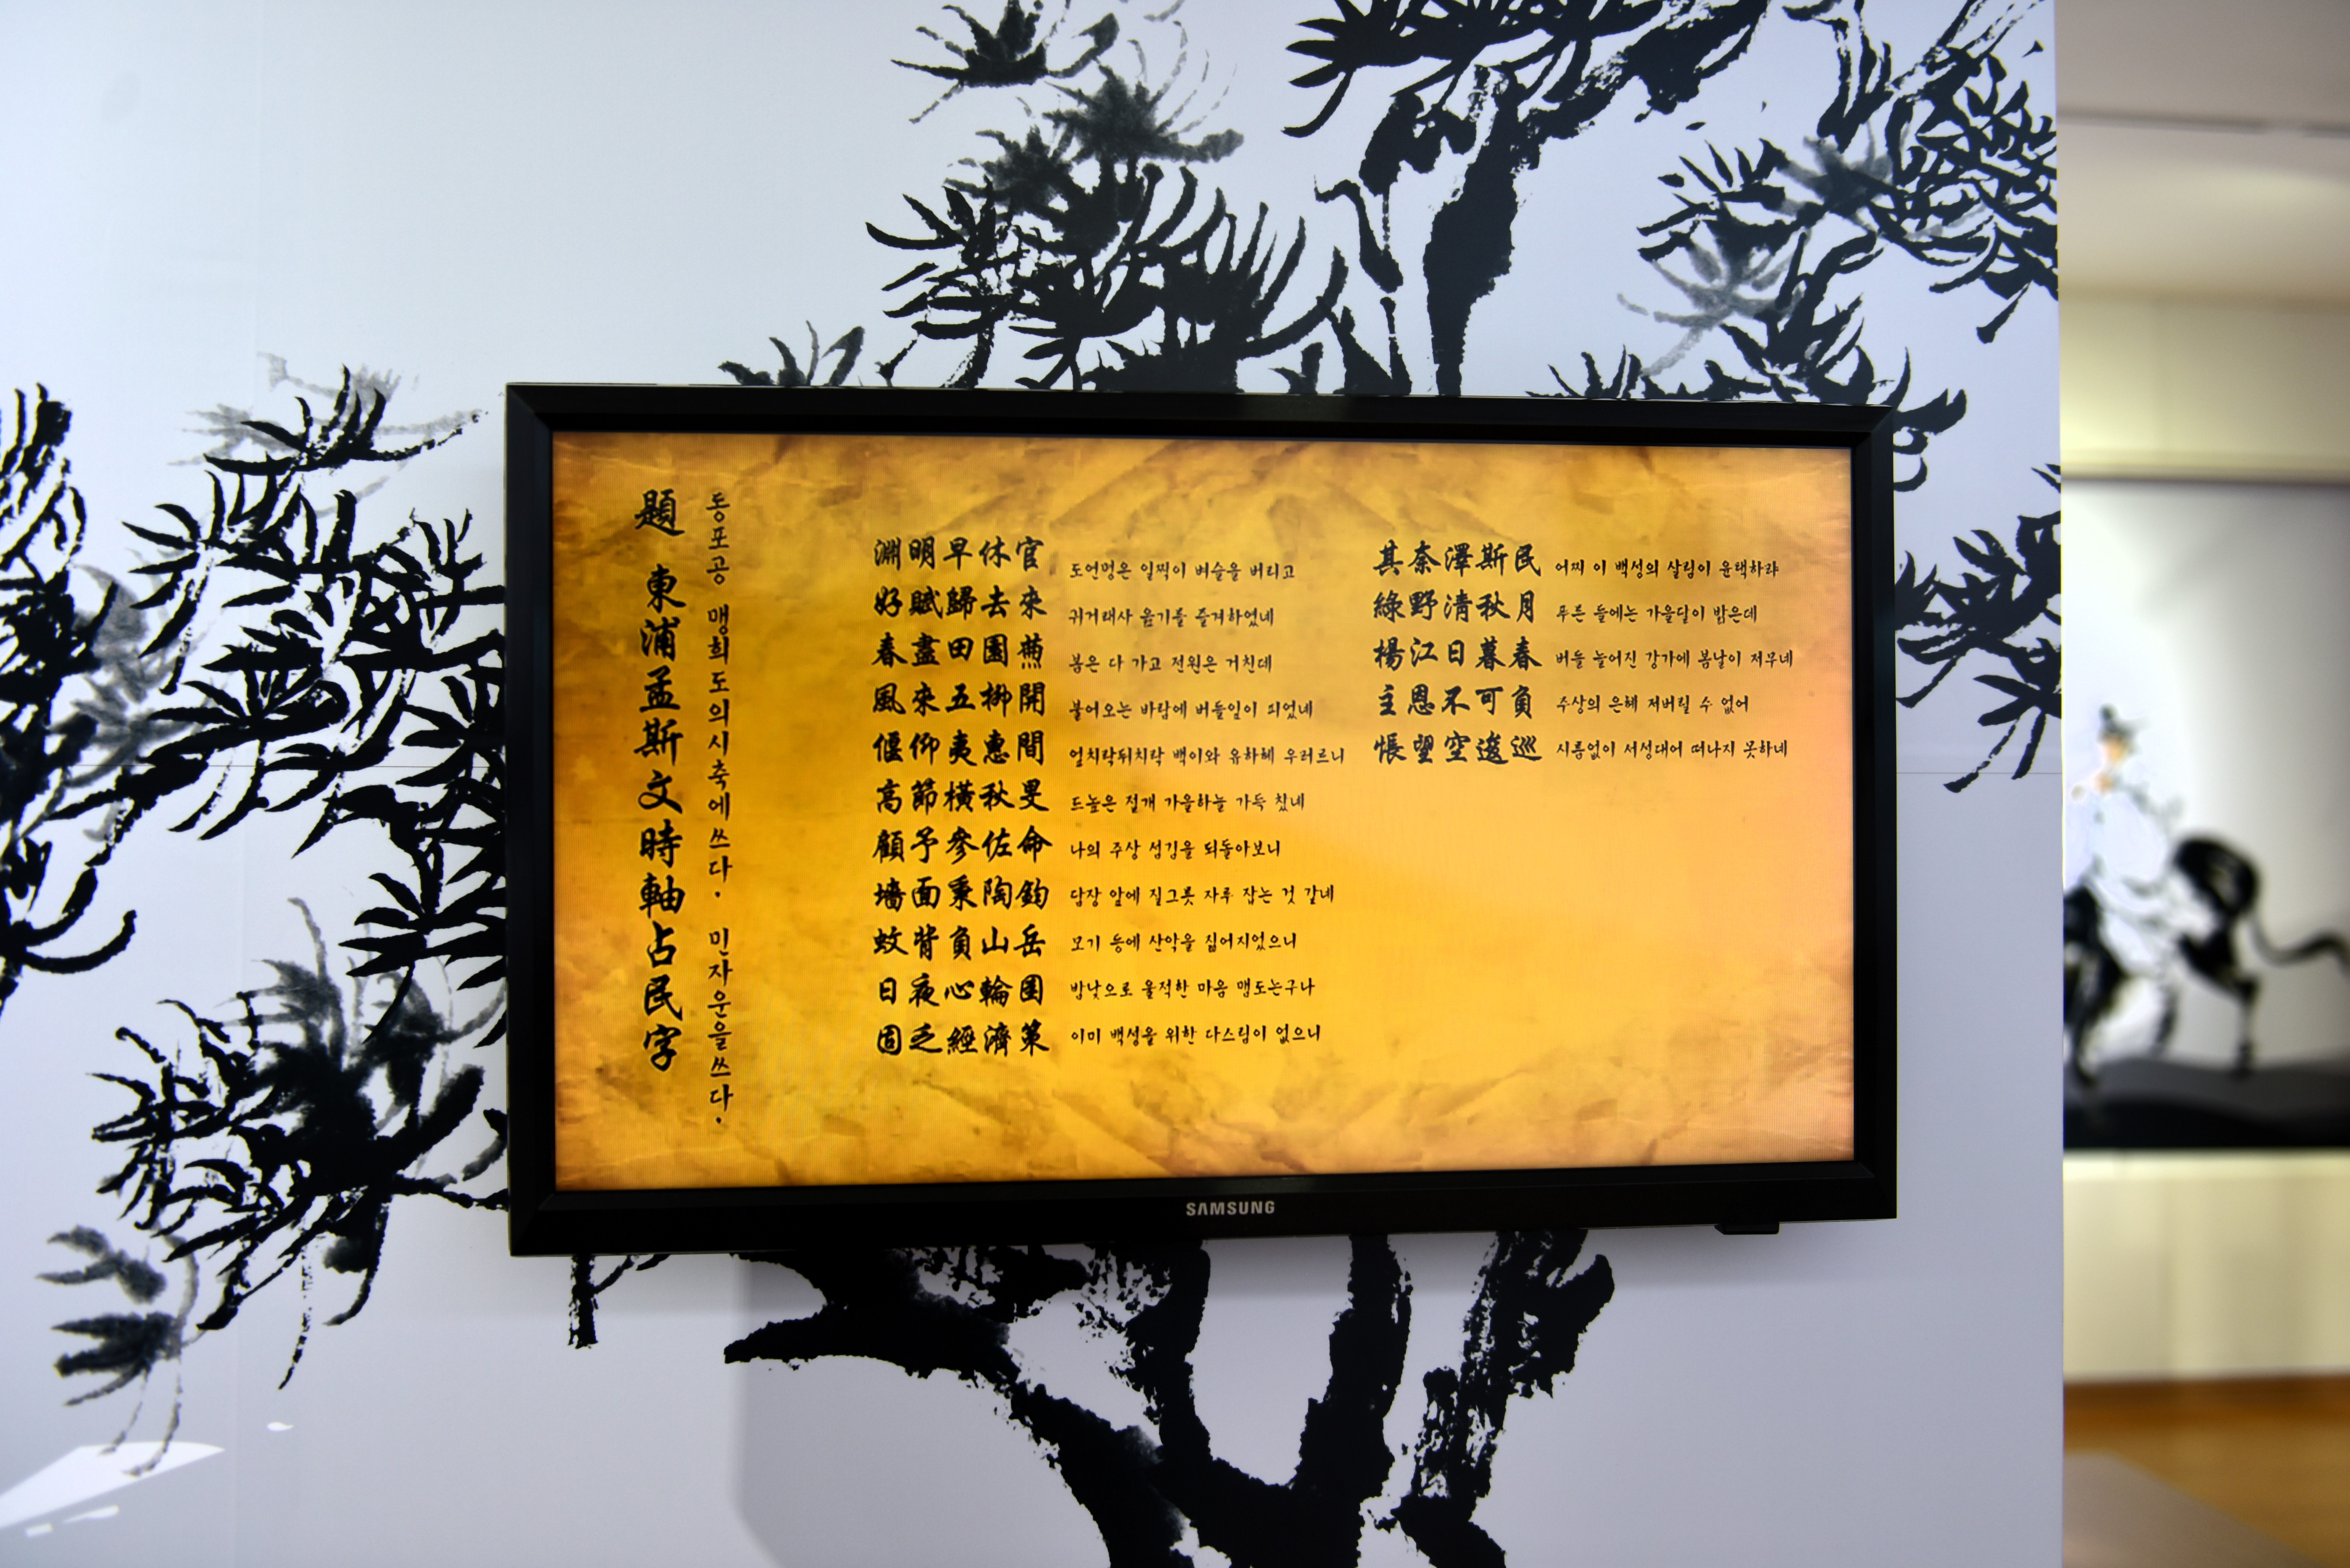 題 東浦孟斯文時軸占民字
동포공 맹희도의시축에쓰다. 민자운을쓰다.
淵明早休官 도연명은 일찍이 벼슬을 버리고
好賦歸去來 귀거래사 읊기를 즐겨하였네
春盡田園蕪 봄은 다 가고 전원은 거친데
風來五柳開 불어오는 바람에 버들잎이 피었네
偃仰夷惠間 엎치락뒤치락 백이와 유하혜 우러르니
高節橫秋旻 드높은 절개 가을하늘 가득 찼네
顧予參佐命 나의 주상 섬김을 되돌아보니
墻面秉陶鈞 담장 앞에 질그릇 자루 잡는 것 같네
蚊背負山岳 모기 등에 산악을 짊어지었으니
日夜心輪囷 밤낮으로 울적한 마음 맴도는구나
固乏經濟策 이미 백성을 위한 다스림이 없으니
其奈澤斯民 어찌 이 백성의 살림이 윤택하랴
綠野清秋月 푸른 들에는 가을달이 밝은데
楊江日暮春 버들 늘어진 강가에 봄날이 저무네
主恩不可負 주상의 은혜 저버릴 수 없어
悵望空逡巡 시름없이 서성대어 떠나지 못하네
SAMSUNG